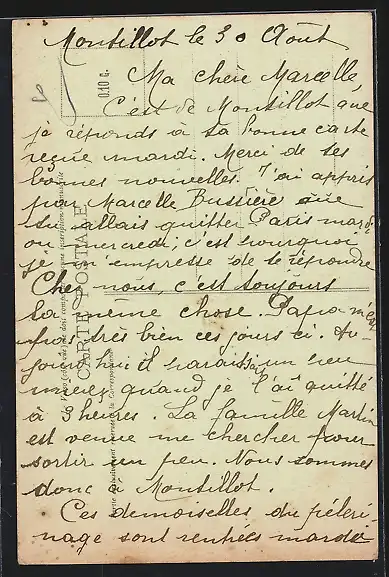 Montillot le 30 Août
Ma chère Marcelle
C'est de Montillot que
je réponds a ta bonne carte
reçue mardi. Merci de tes
bonnes nouvelles. J'ai appris
par Marcelle Bussière que
tu allais quitter Paris mardi
ou mercredi; c'est pourquoi
je m'empresse de te répondre
Chez nous, c'est toujours
la même chose. Papa n'est
pas très bien ces jours ci. Au-
jourd'hui il paraissait un peu
mieux quand je l'ai quitté
à 3 heures. La famille Martin
est venue me chercher pour
sortir un peu. Nous sommes
donc à Montillot.
Ces demoiselles du péleri
nage sont rentrées mardi
0.10 c.
CARTE POSTALE